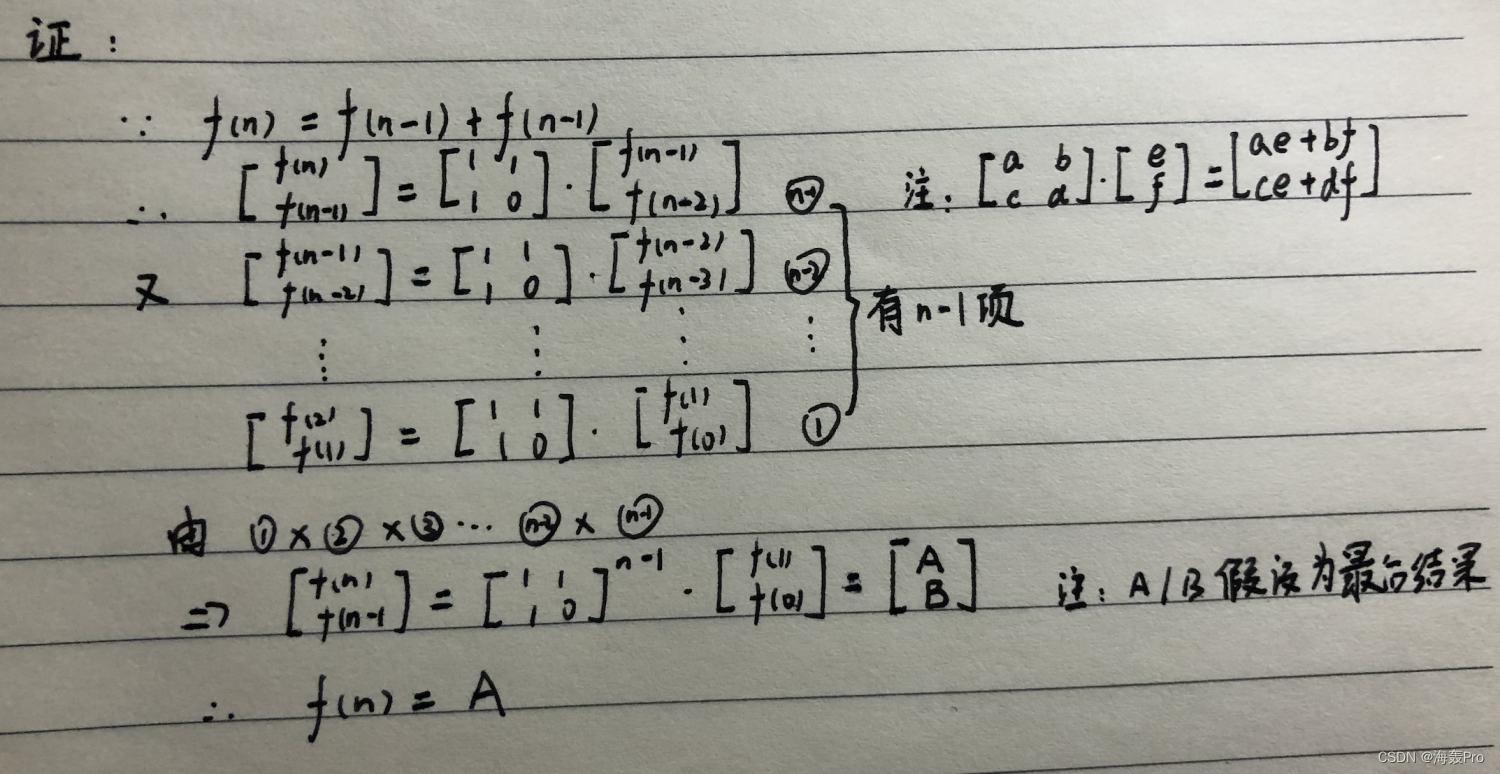 证：
∵ f(n) = f(n-1) + f(n-1)
∴ [f(n) f(n-1)] = [1 1 1 0] · [f(n-1) f(n-2)] (n-1) 注: [a b c d]·[e f] = [ae+bf ce+df]
又 [f(n-1) f(n-2)] = [1 1 1 0] · [f(n-2) f(n-3)] (n-2)
有n-1项
⋮ ⋮ ⋮ ⋮
[f(2) f(1)] = [1 1 1 0] · [f(1) f(0)] ①
由 ① × ② × ③ ··· (n-2) × (n-1)
=> [f(n) f(n-1] = [1 1 1 0]^n-1 · [f(1) f(0)] = [A B] 注: A/B 假设为最后结果
∴ f(n) = A
CSDN @海轰Pro